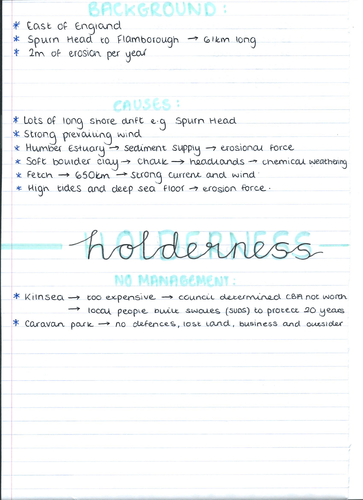 BACKGROUND:
* East of England
* Spurn Head to Flamborough → 61km long
* 2m of erosion per year
CAUSES:
* Lots of long shore drift e.g Spurn Head
* Strong prevailing wind
* Humber Estuary → sediment supply → erosional force
* Soft boulder clay → chalk → headlands → chemical weathering
* Fetch → 650km → strong current and wind
* High tides and deep sea floor → erosion force.
HOLDERNESS
holderness
NO MANAGEMENT:
* Kilnsea → too expensive → council determined CBA not worth
→ local people built swales (SUDS) to protect 20 years
* Caravan park → no defences, lost land, business and outsider